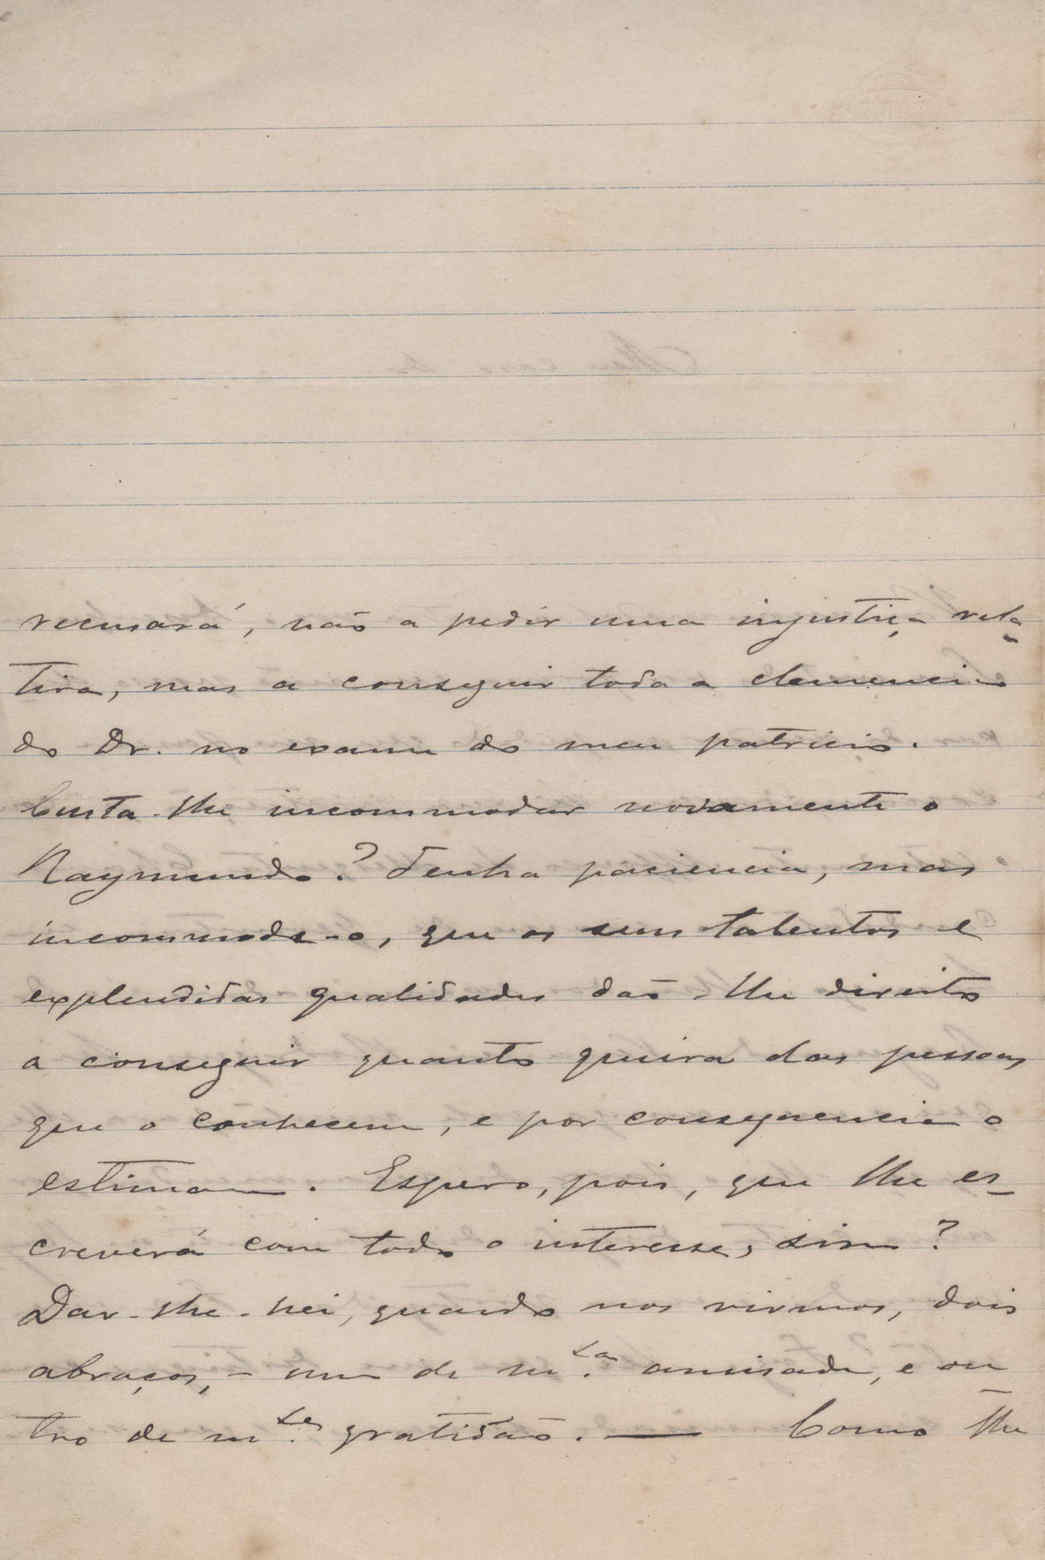 recusará, não a pedir uma injustiça rela-
tiva, mas a conseguir toda a clemencia
do Dr. no exame do meu patricio.
Custa-lhe incommodar novamente o
Raymundo? Tenha paciencia, mas
incommode-o, que os seus talentos e
explendidas qualidades dão-lhe direito
a conseguir quanto queira das pessoas
que o conhecem, e por consequencia o
estimam. Espero, pois, que lhe es-
creverá com todo o interesse, sim?
Dar-lhe-hei, quando nos virmos, dois
abraços, - um de m.ta amisade, e ou
tro de m.ta gratidão. — Como lhe